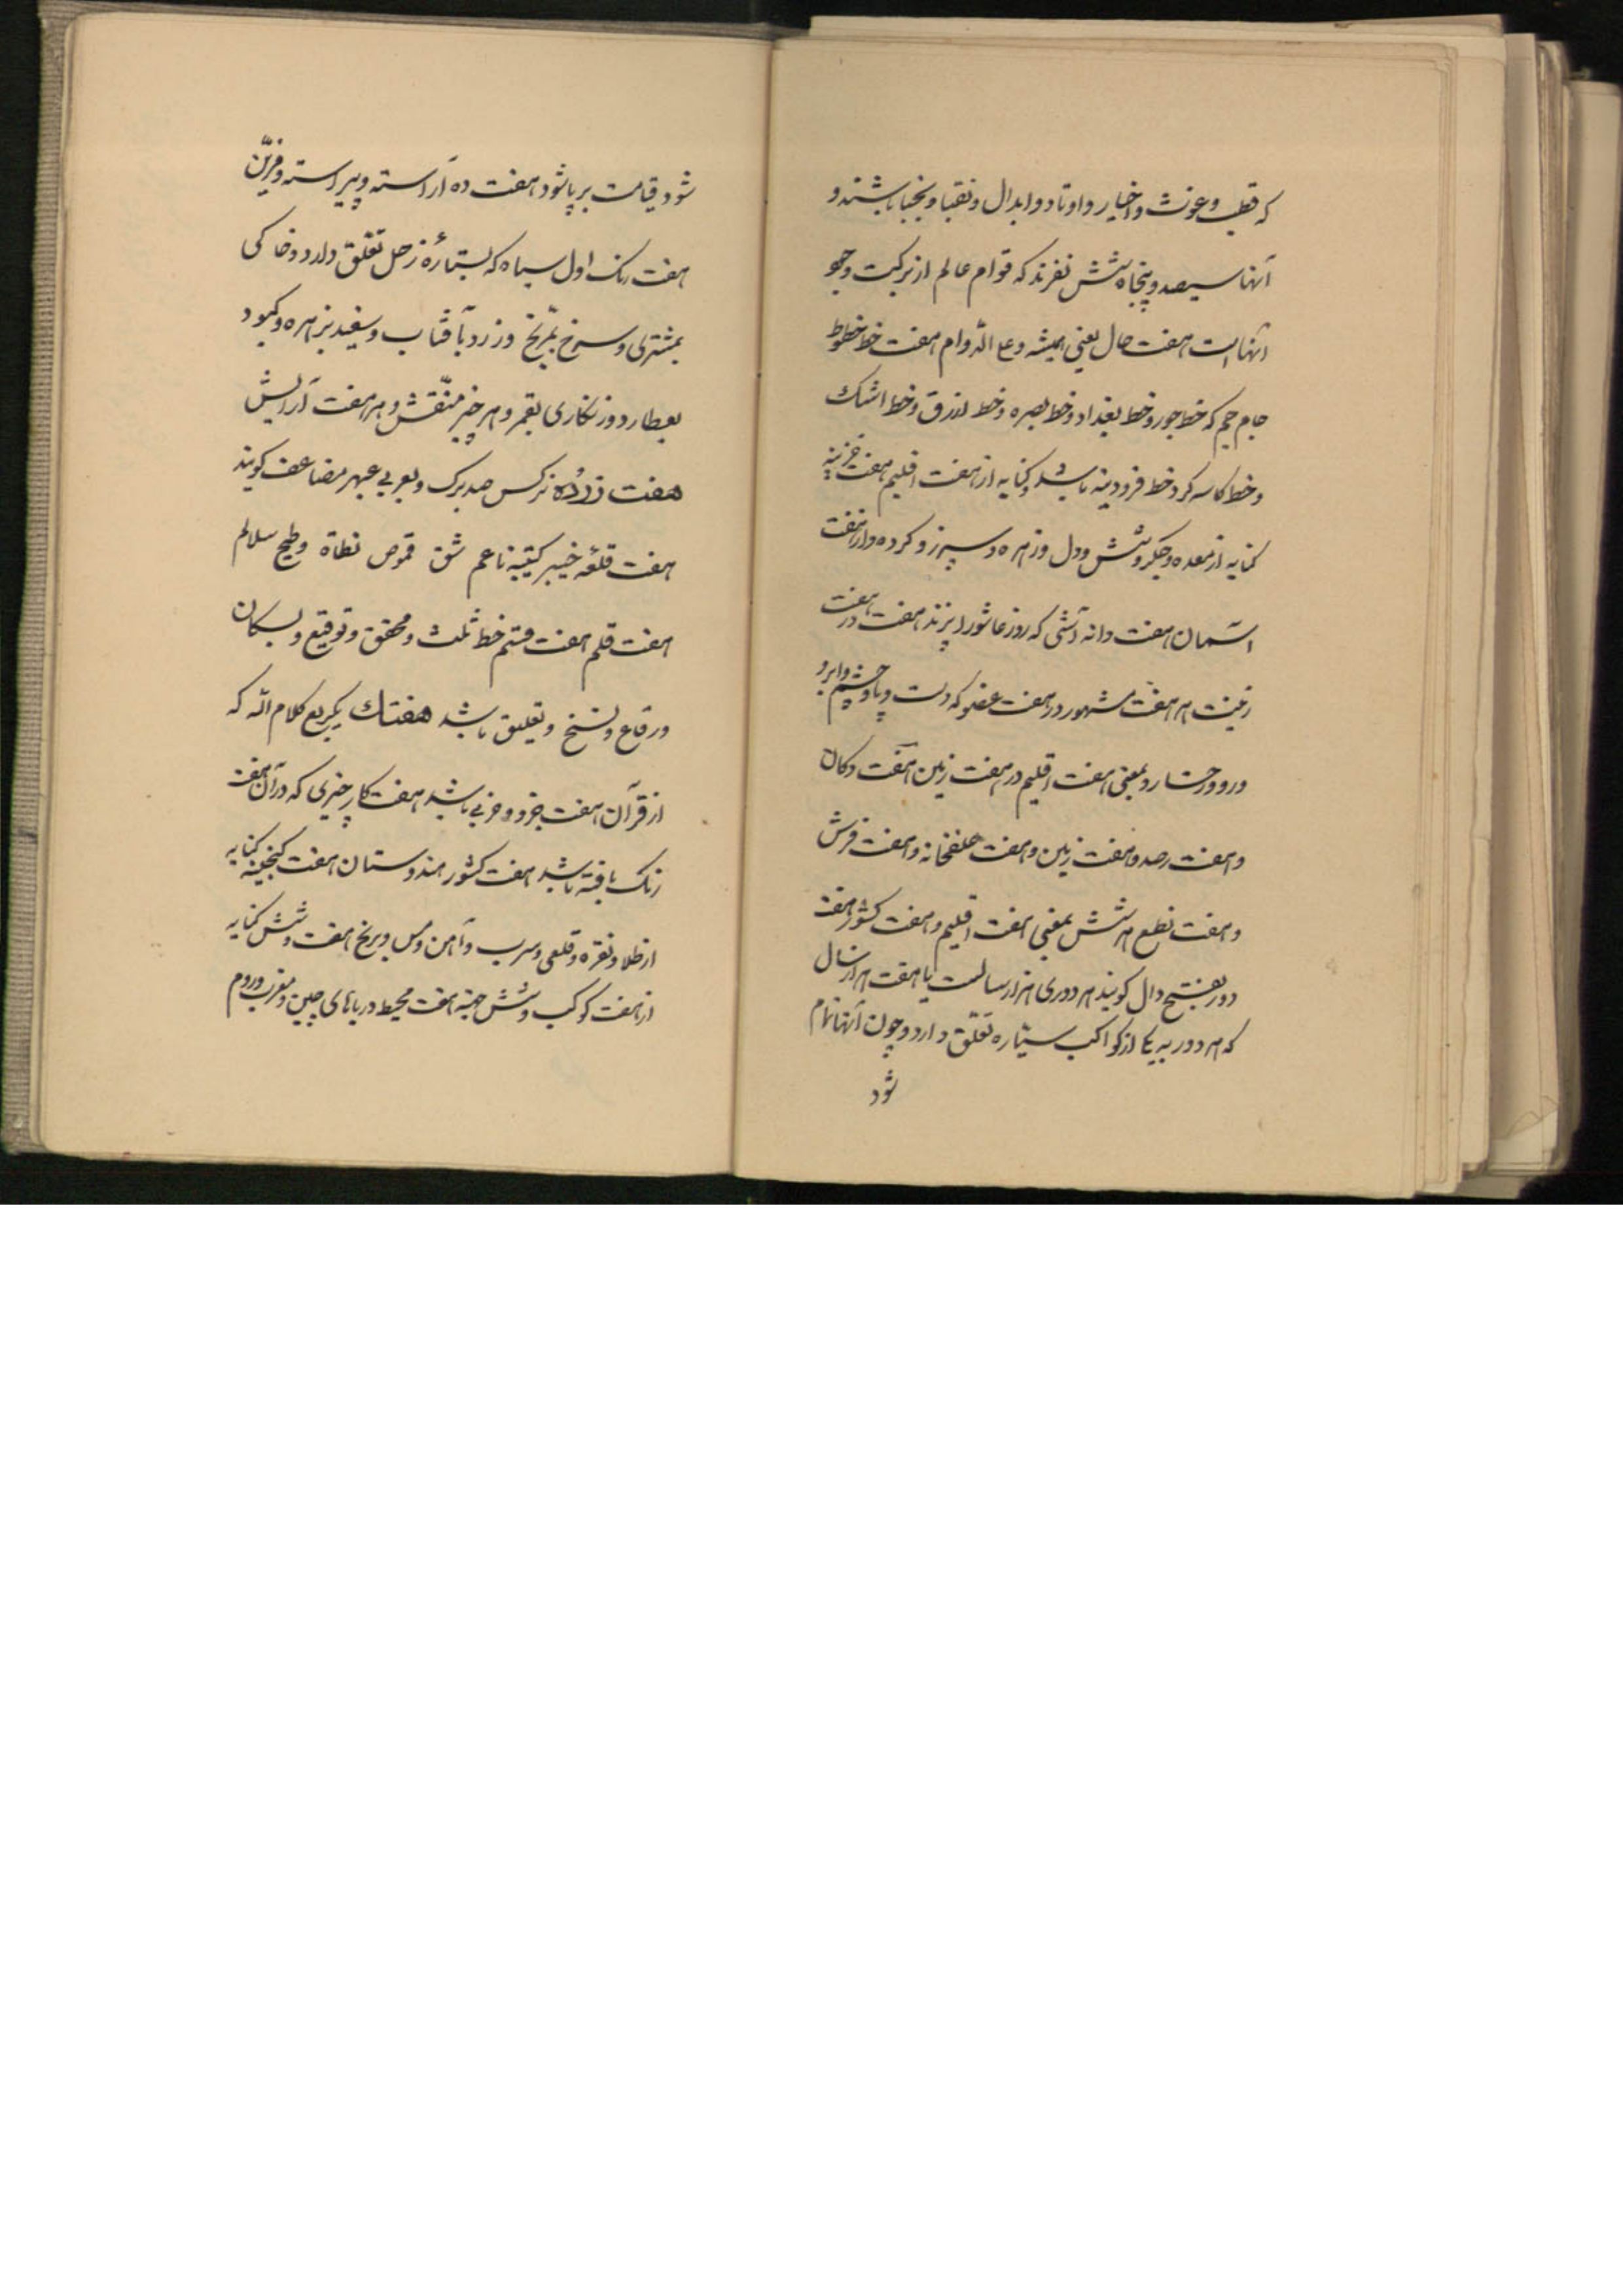 که قطب و غوث و اخیار و اوتاد و ابدال و نقبا و نجبا باشند و
آنها سیصد و پنجاه شش نفرند که قوام عالم از برکت وجو
آنهاست هفت حال یعنی همیشه و علی الدوام هفت خط خطوط
جام جم که خط جور و خط بغداد و خط بصره و خط ازرق و خط اشک
و خط کاسه کر و خط فرودینه باشد و کنایه از هفت اقلیم هفت خزینه
کنایه از معده و جکر و شش و دل و زهره و سپرز و کرده و از هفت
آسمان هفت دانه آشی که روز عاشورا پزند هفت در هفت
زینت هر هفت مشهور در هفت عضو که دست و پا و چشم و ابرو
و رو و رخسار و بمعنی هفت اقلیم در هفت زمین هفت دکان
و هفت رصد و هفت زمین و هفت علفخانه و هفت فرش
و هفت نطع هر شش بمعنی هفت اقلیم و هفت کشور هفت
دور بفتح دال کویند هر دوری هزار سالست یا هفت هزار سال
که هر دور به یکی از کواکب سیّاره تعلّق دارد و چون آنها تمام
شود
شود قیامت برپا شود هفت ده آراسته و پیراسته و مزیّن
هفت رنک اول سیاه که بستارهٔ زحل تعلّق دارد و خاکی
بمشتری و سرخ بمرّیخ و زرد بآفتاب و سفید بزهره و کبود
بعطارد و زنکاری بقمر و هر چیز منّقش و هر هفت آرایش
هفت زرده نرکس صد برک و بعربی عبهر مضاعف کویند
هفت قلعه خیبر کتیبه ناعم شق قموص نطاة وطیح سلالم
هفت قلم هفت قسم خط ثلث و محقق و توقیع و ریحان
و رقاع و نسخ و تعلیق باشد هفتاک یکربع کلام الله که
از قرآن هفت جزو و حزبی باشد هفت کار چیزی که در آن هفت
رنک بافته باشد هفت کشور هندوستان هفت کنجینه کنایه
از طلا و نقره و قلعی و سرب و آهن و مس و برنج هفت و شش کنایه
از هفت کوکب و شش جهة هفت محیط دریاهای چین و مغرب و روم